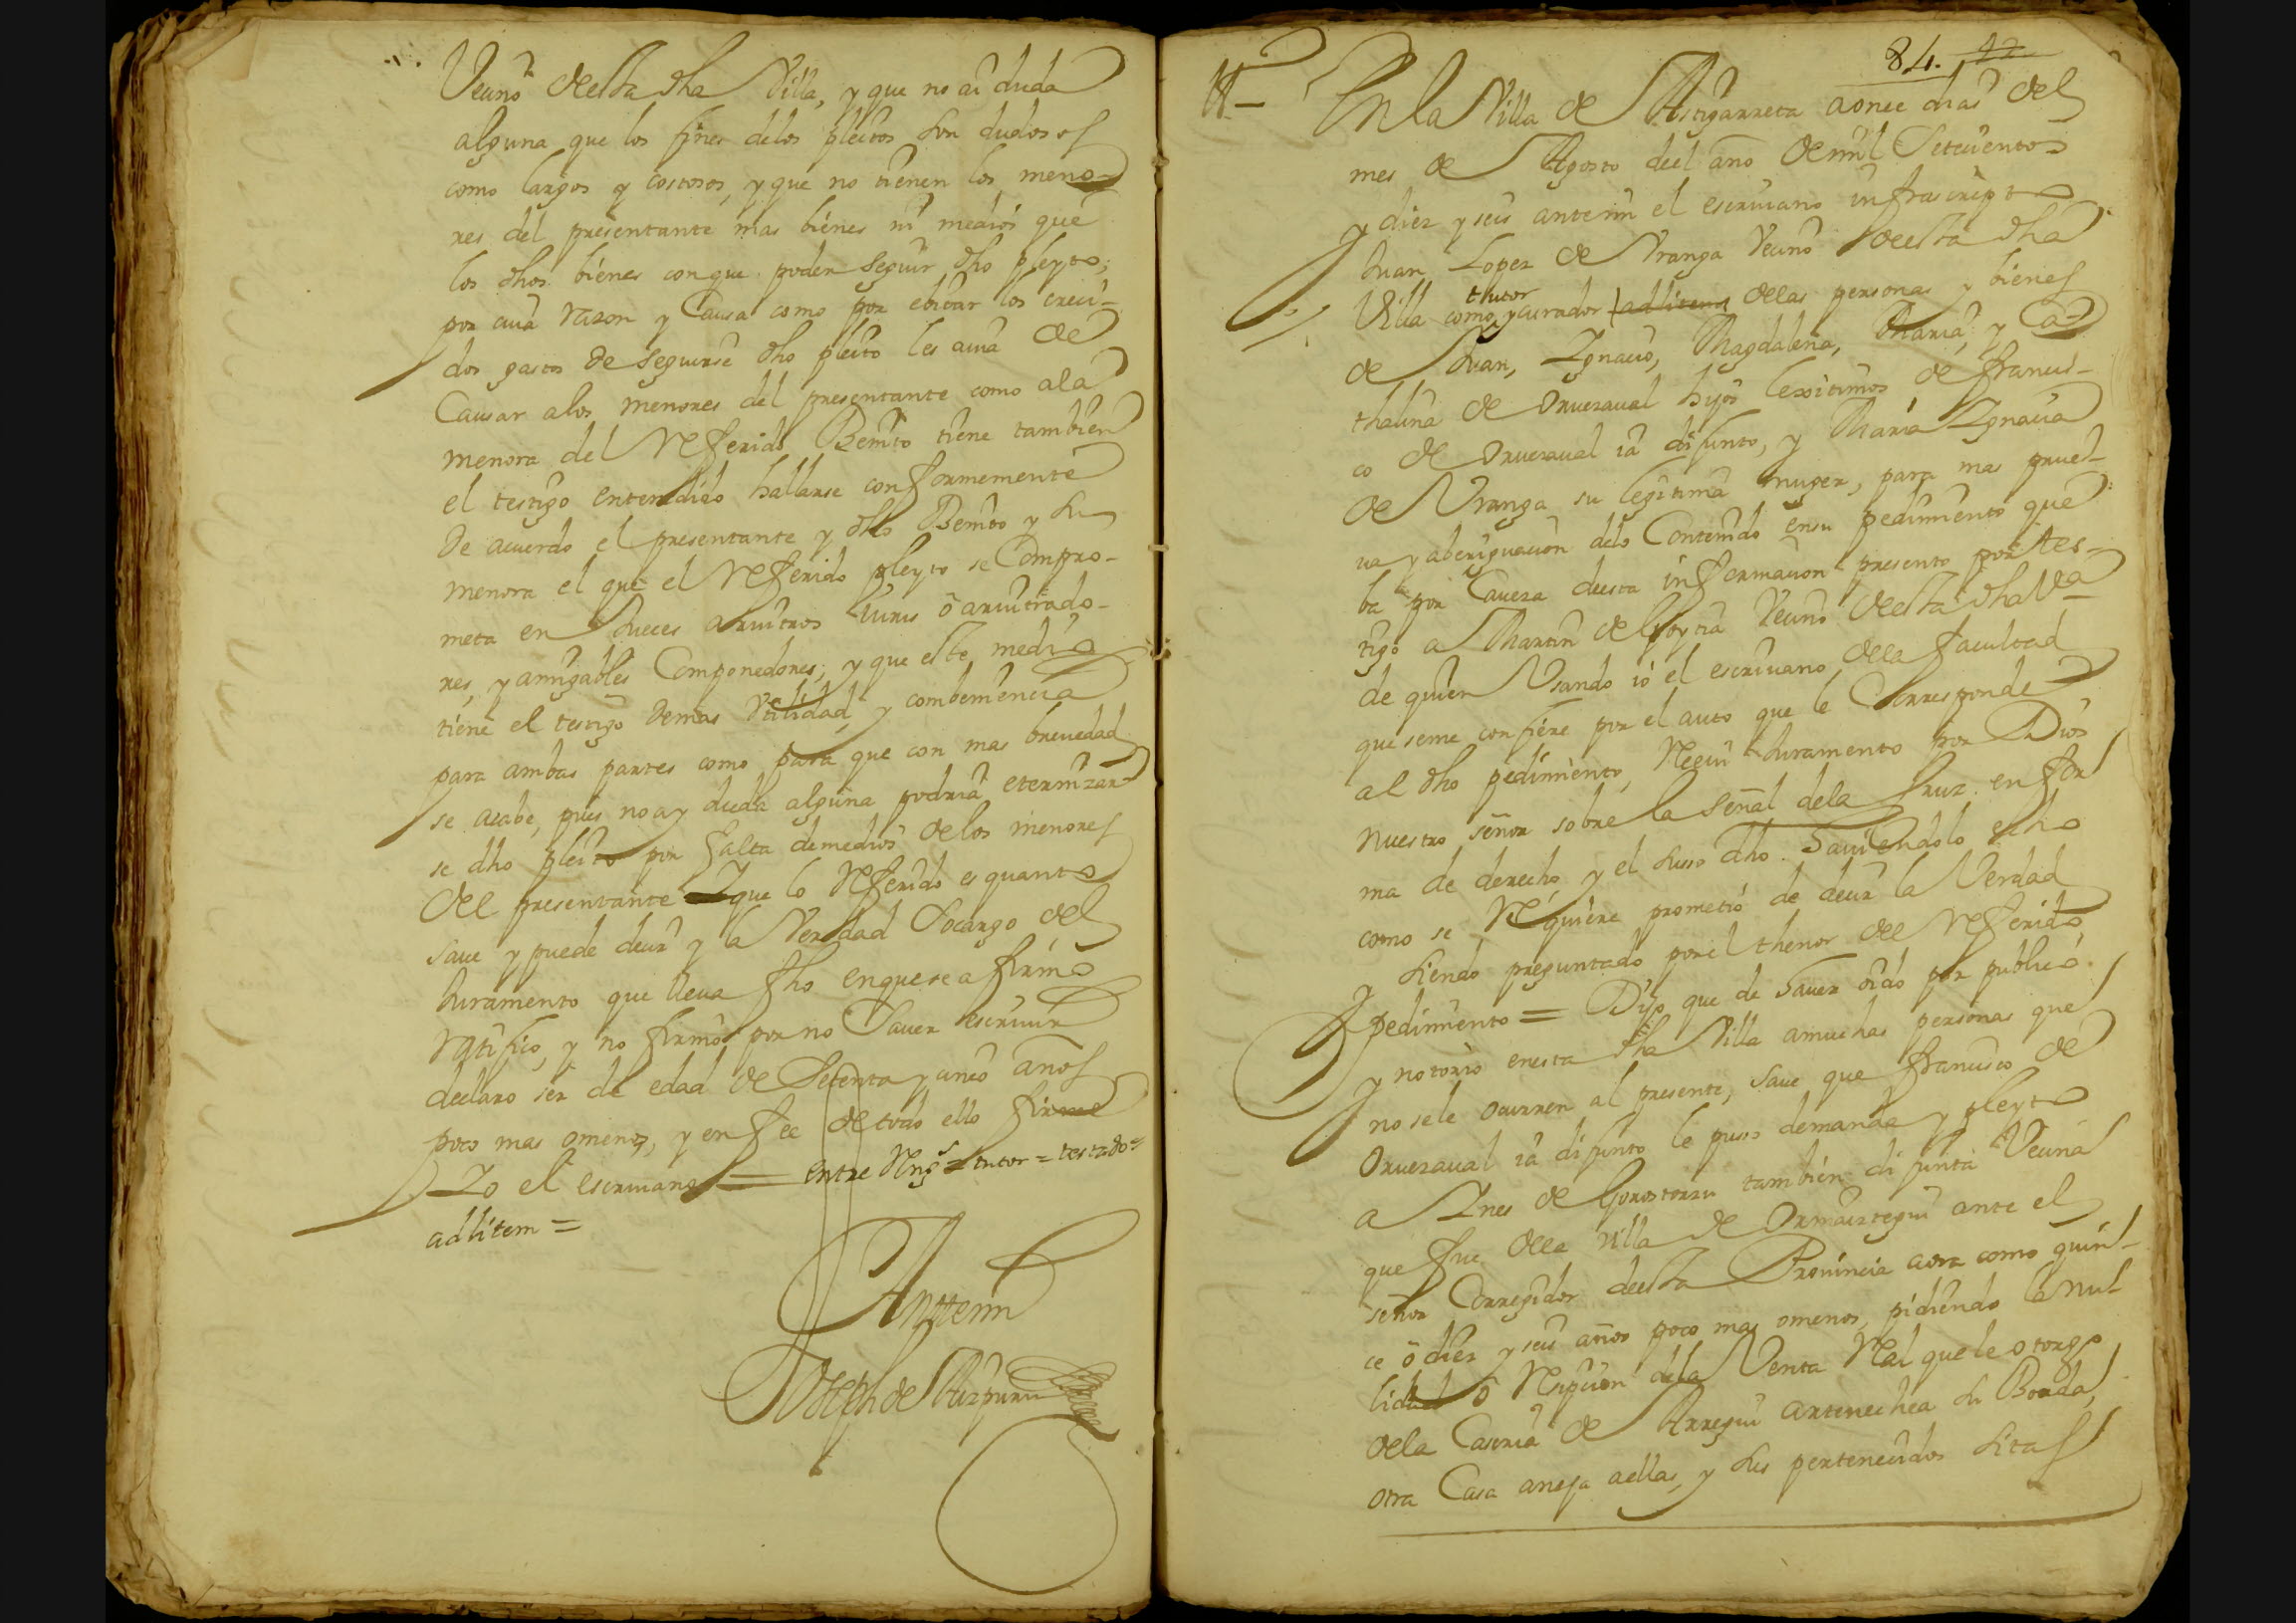 Vecino desta dha Villa, y que no ai duda
alguna que los fines delos pleitos son dudosos
como largos y costosos, y que no tienen los meno-
res del presentante mas bienes ni medios que
los dhos bienes con que poder seguir dho pleyto;
por cuia razon y Causa como por ebitar los creci-
dos gastos de seguirse dho pleito les auia de
Causar alos menores del presentante como ala
menora del Referido Benito tiene tambien
el testigo entendido hallarse conformemente
de acuerdo el presentante y dho Benito y su
menora el que el Referido pleyto se Compro-
meta en Jueces aruitros Juris ô aruitrado-
res, y amigables Componedores, y que este medio
tiene el testigo demas Vtilidad, y combeniencia
para ambas partes como para que con mas breuedad
se acabe, pues no ay duda alguna podria eternizar
se dho pleito por falta demedios delos menores
del presentante Y que lo Referido es quanto
saue y puede decir y la Verdad Socargo del
Juramento que lleua fho en que se afirmo
Ratifico, y no firmo por no Sauer escriuir
declaro ser de edad de Setenta y cinco años
poco mas omenos, y en fee de todo ello firme
Yo el escriuano = entre Rengs = tutor = testado =
adlitem =
Anttemi
Joseph de Aizpuru
84. 42
tt—
En la Villa de Astigarreta a once dias del
mes de Agosto deel año de mil Setecientos
y diez y seis antemi el escriuano infrascripto
Juan Lopez de Vranga Vecino desta dha
thutor
Villa como y curador adlitem delas personas y bienes
de Juan, Ygnacio, Magdalena, Maria, y Ca-
thalina de Oruezaual hijos lexitimos de francis-
co de Oruezaual ia difunto, y Maria Ygnacia
de Vranga su legitima muger, para mas prue-
ua y aberiguacion delo Contenido ensu pedimiento que
ba por Caueza deesta informacion presento por tes-
tigo a Martin de Goytia Vecino desta dha Va
de quien Vsando io el escriuano dela facultad
que seme confiere por el auto que le Corresponde
al dho pedimiento, Reciui Juramento por Dios
nuestro señor sobre la señal dela Cruz en for
ma de derecho, y el Suso dho Sauiendolo echo
como se Requiere prometió de decir la Verdad
y siendo preguntado porel thenor del Referido
pedimiento = Dijo que de Sauer oido por publico
y notorio enesta dha Villa amuchas personas que
no sele ocurren al presente, saue que francisco de
Oruezaual ia difunto le puso demanda y pleyto
a Ynes de Gorostorzu tambien difunta Vecina
que fue dela Villa de Ormaiztegui ante el
señor Corregidor deesta Prouincia aora como quin-
ce ô diez y seis años poco mas omenos, pidiendo la nul
lidad ô Recision dela Venta Real que le otorgo
dela Caseria de Arregui artenechea su Borda,
otra Casa aneja aellas, y sus pertenecidos sitas